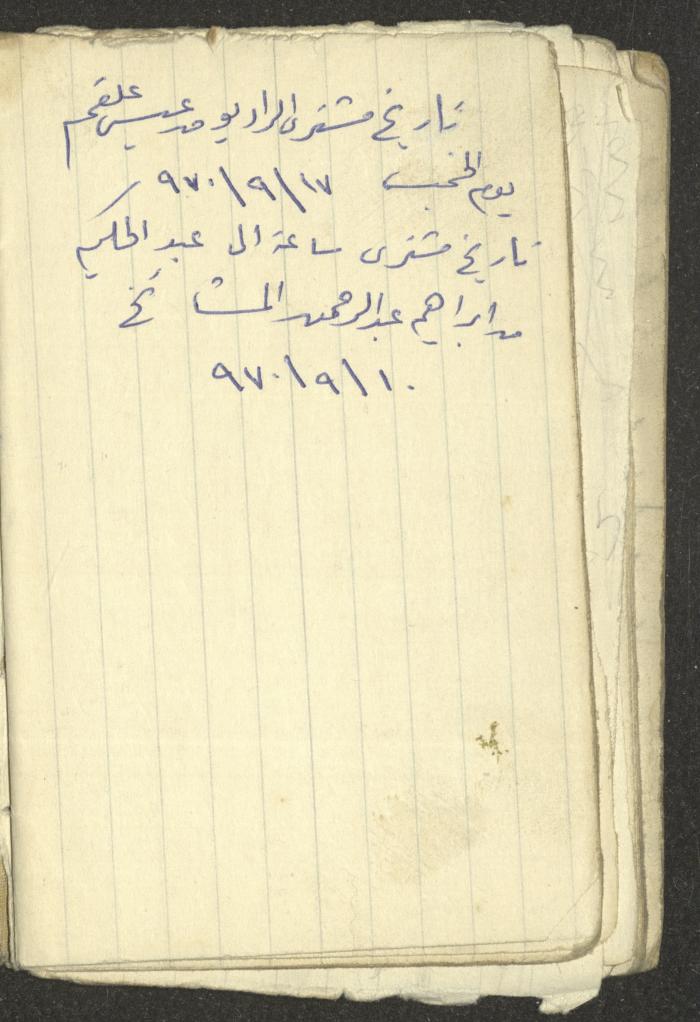 تاريخ مشترى الراديو من عيسى علقم
يوم الخميس ١٧/٩/٩٧٠
تاريخ مشترى ساعة الى عبد الحكيم
من ابراهيم عبد الرحمن المشايخ
١٠/٩/٩٧٠